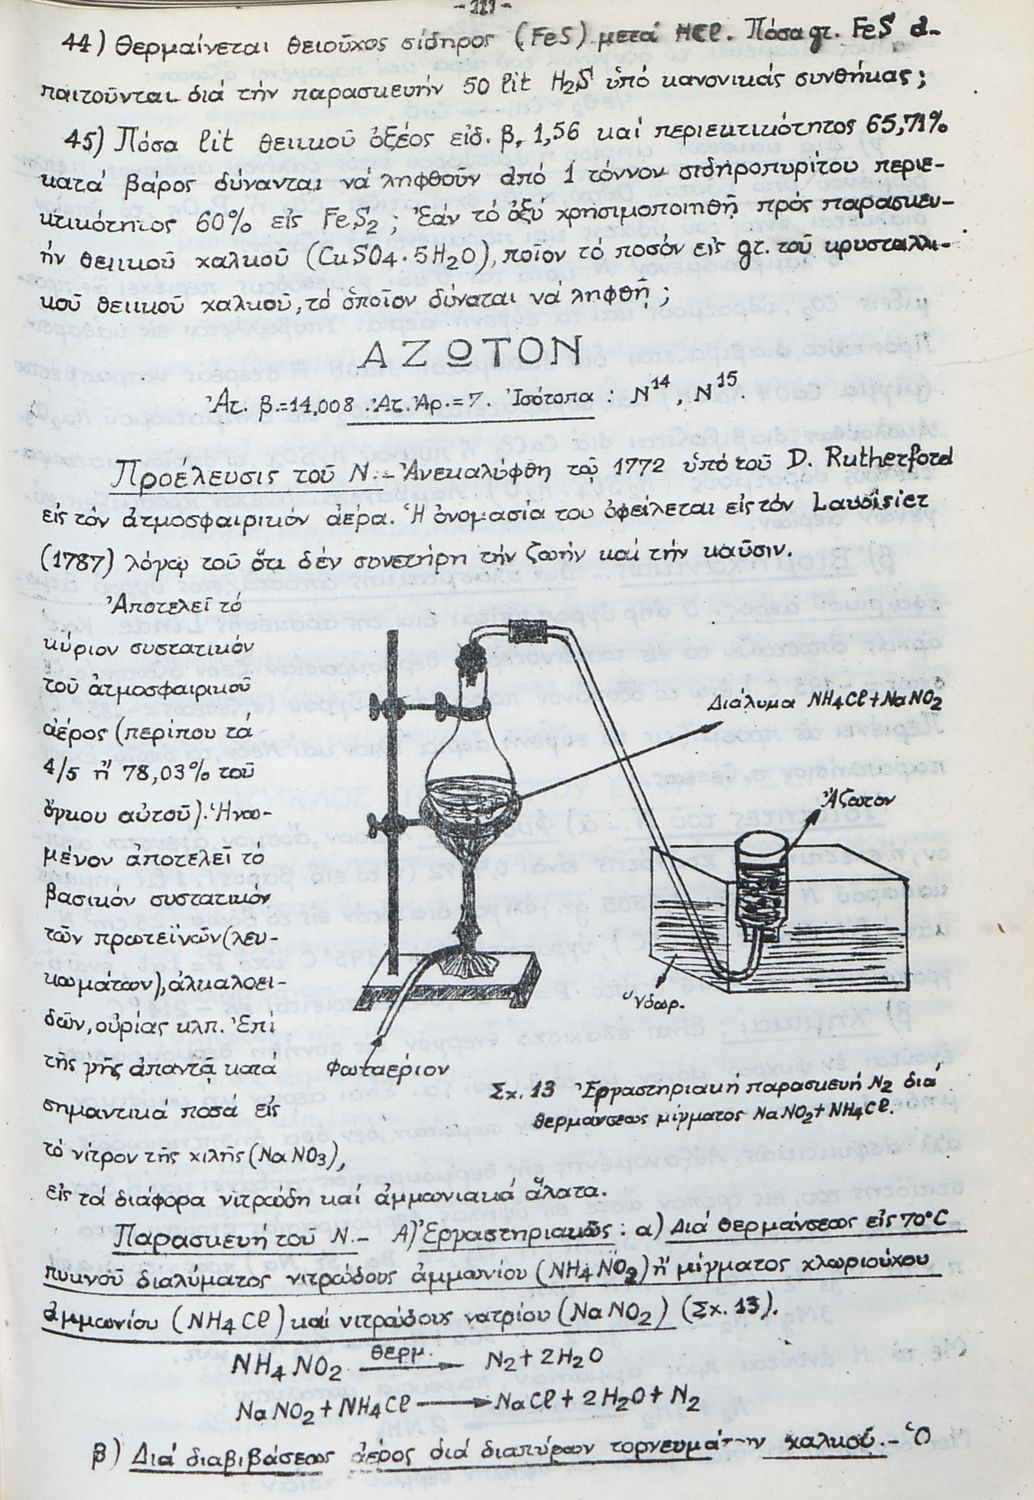 - 111 -
44) Θερμαίνεται θειοῦχος σίδηρος (FeS) μετά HCl. Πόσα gr. FeS ἀ-
παιτοῦνται διά τήν παρασκευήν 50 lit H₂S ὑπό κανονικάς συνθήκας;
45) Πόσα lit θειικοῦ ὀξέος εἰδ. β. 1,56 καί περιεκτικότητος 65,71%
κατά βάρος δύνανται νά ληφθοῦν ἀπό 1 τόννον σιδηροπυρίτου περιε-
κτικότητος 60% εἰς FeS₂; Ἐάν τό ὀξύ χρησιμοποιηθῇ πρός παρασκευ-
ήν θειικοῦ χαλκοῦ (CuSO4·5H₂O), ποῖον τό ποσόν εἰς gr. τοῦ κρυσταλλι-
κοῦ θειικοῦ χαλκοῦ, τό ὁποῖον δύναται νά ληφθῇ;
ΑΖΩΤΟΝ
Ἀτ. β.=14,008. Ἀτ. Ἀρ.=7. Ἰσότοπα: N¹⁴, N¹⁵.
Προέλευσις τοῦ Ν.- Ἀνεκαλύφθη τῷ 1772 ὑπό τοῦ D. Rutherford
εἰς τόν ἀτμοσφαιρικόν ἀέρα. Ἡ ὀνομασία του ὀφείλεται εἰς τόν Lavoisier
(1787) λόγῳ τοῦ ὅτι δέν συνετήρη τήν ζωήν καί τήν καῦσιν.
Ἀποτελεῖ τό
κύριον συστατικόν
τοῦ ἀτμοσφαιρικοῦ
ἀέρος (περίπου τά
4/5 ἤ 78,03% τοῦ
ὄγκου αὐτοῦ). Ἡνω-
μένον ἀποτελεῖ τό
βασικόν συστατικόν
τῶν πρωτεϊνῶν (λευ-
κωμάτων), ἀλκαλοει-
δῶν, οὐρίας κλπ. Ἐπί
τῆς γῆς ἀπαντᾷ κατά
σημαντικά ποσά εἰς
τό νίτρον τῆς χιλῆς (NaNO₃),
εἰς τά διάφορα νιτρώδη καί ἀμμωνιακά ἅλατα.
Διάλυμα NH₄Cl+NaNO₂
Ἄζωτον
Ὑδωρ.
Φωταέριον
Σχ. 13 Ἐργαστηριακή παρασκευή N₂ διά
θερμάνσεως μίγματος NaNO₂+NH₄Cl.
Παρασκευή τοῦ Ν.- Α) Ἐργαστηριακῶς: α) Διά θερμάνσεως εἰς 70°C
πυκνοῦ διαλύματος νιτρώδους ἀμμωνίου (NH₄NO₂) ἤ μίγματος χλωριούχου
ἀμμωνίου (NH₄Cl) καί νιτρώδους νατρίου (NaNO₂) (Σχ. 13).
NH₄NO₂ θερμ. → N₂+2H₂O
NaNO₂+NH₄Cl → NaCl+2H₂O+N₂
β) Διά διαβιβάσεως ἀέρος διά διαπύρων τορνευμάτων χαλκοῦ.- Ὁ